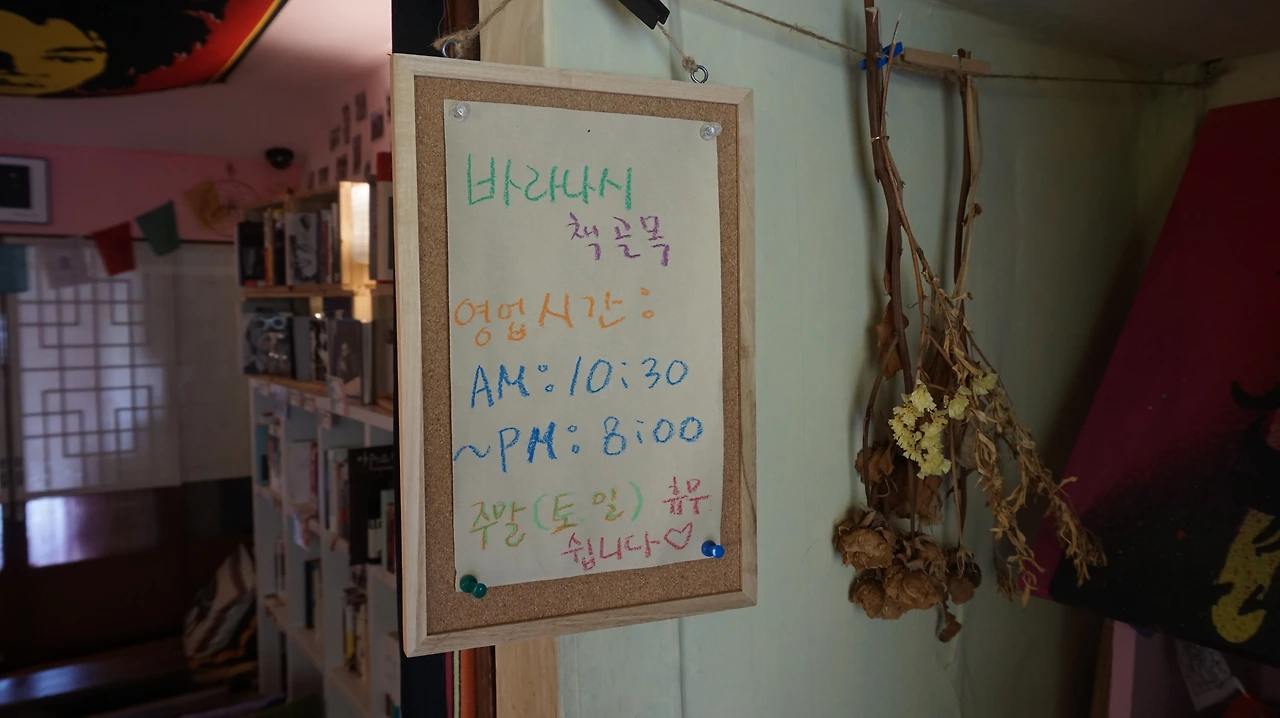 바라나시
책골목
영업시간:
AM:10:30
~PM:8:00
주말(토.일) 휴무
쉽니다♡